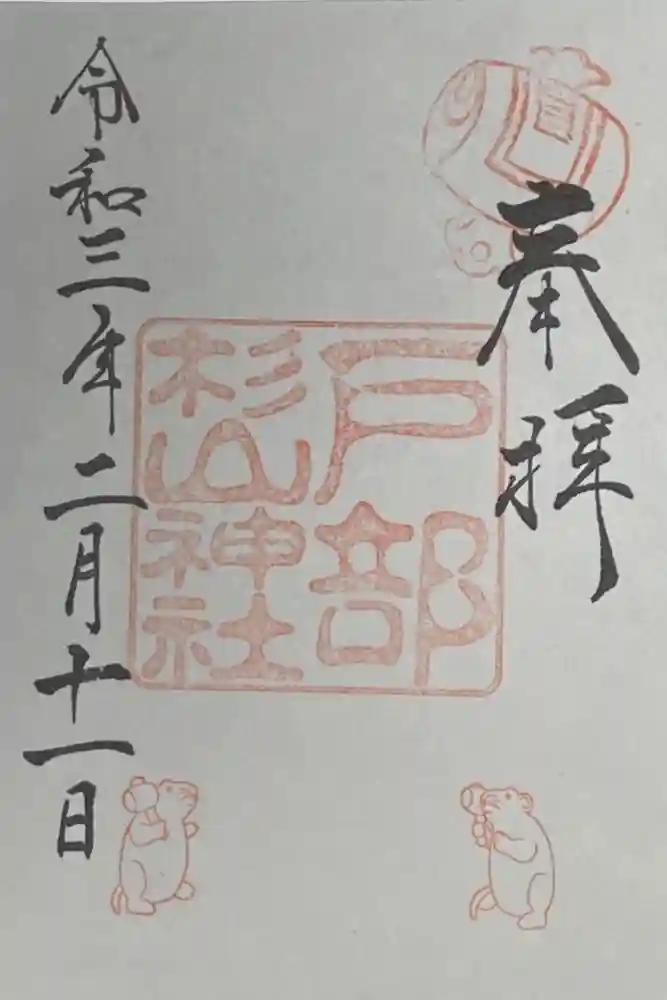 奉拝
戸部
杉山
神社
令和三年二月十一日